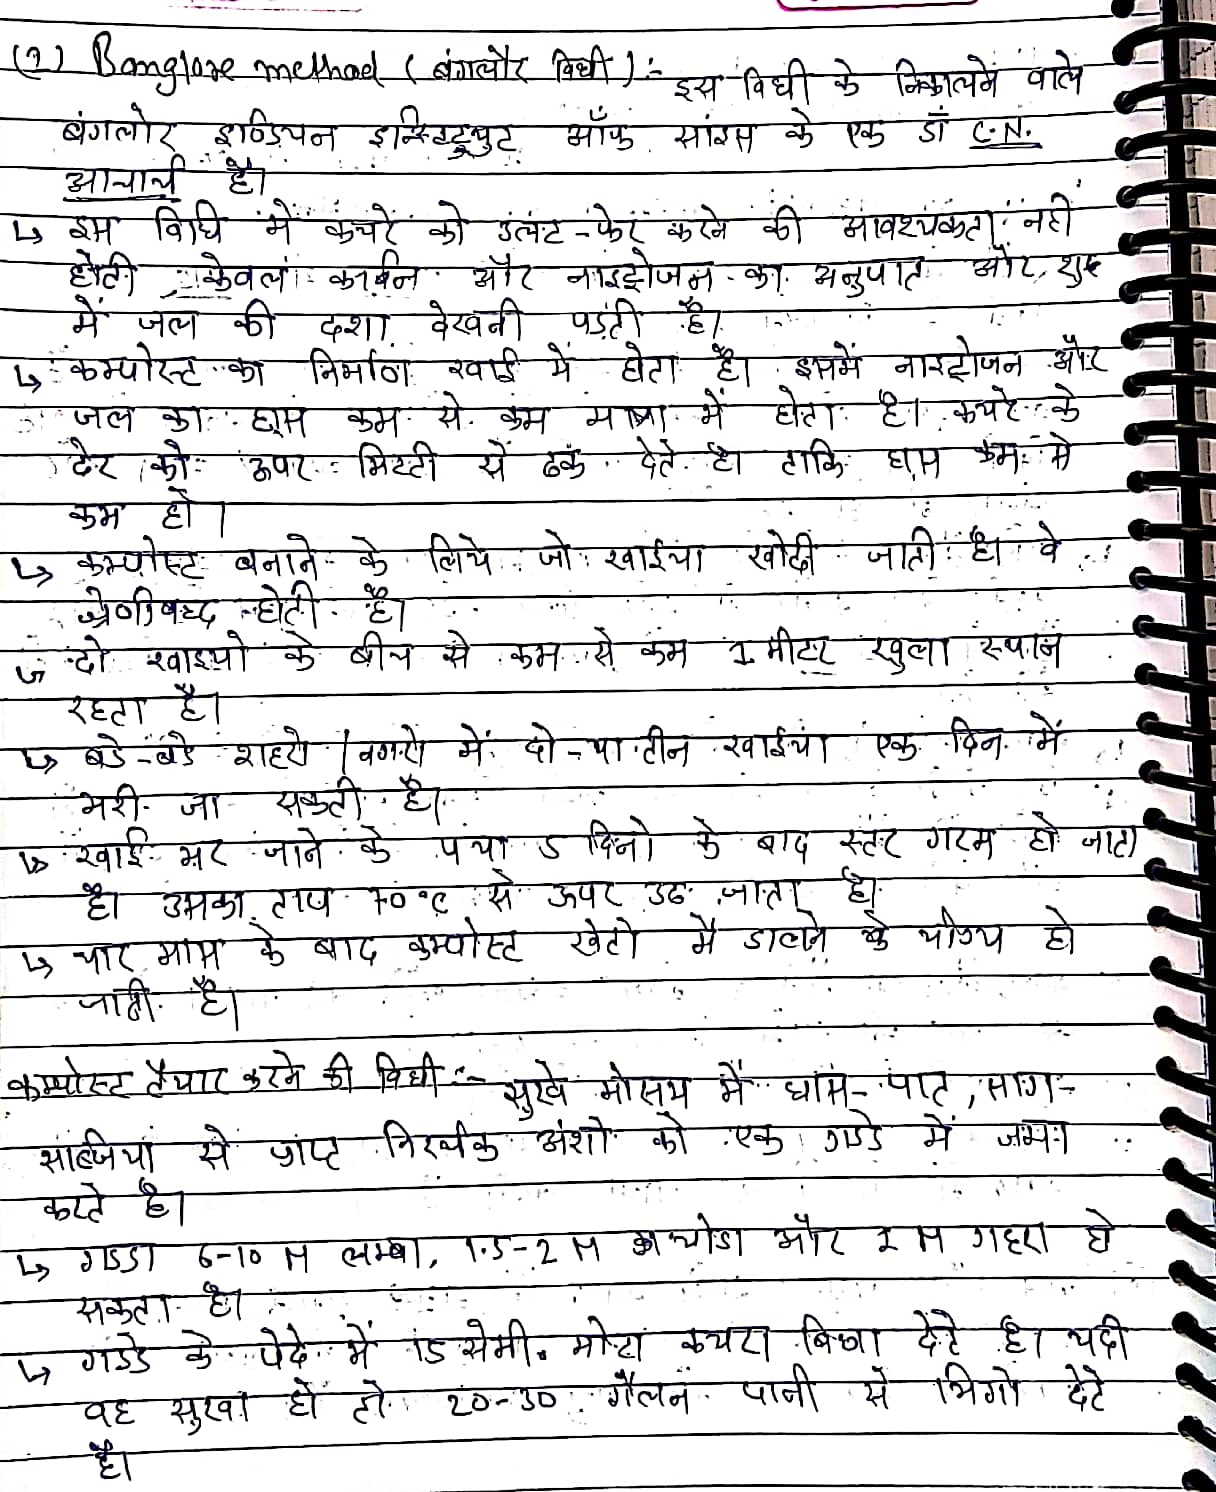 (1) Banglore method (बंगलौर विधी) :- इस विधी के निकालने वाले
बंगलोर इण्डियन इन्स्टिट्युट ऑफ सांइस के एक डॉ C.N.
आचार्य है।
↳ इस विधि में कचरे को उलट-फेर करने की आवश्यकता नही
होती, केवल कार्बन और नाइट्रोजन का अनुपात और शुरू
में जल की दशा देखनी पडती है।
↳ कम्पोस्ट का निर्माण खाई में होता है। इसमें नाइट्रोजन और
जल का ह्रास कम से कम मात्रा में होता है। कचरे के
ढेर को ऊपर मिट्टी से ढक देते है। ताकि ह्रास कम से
कम हो।
↳ कम्पोस्ट बनाने के लिये जो खाईया खोदी जाती है। वे
श्रेणीबध्द होती है।
↳ दो खाइयो के बीच से कम से कम 1 मीटर खुला स्थान
रहता है।
↳ बडे-बडे शहरो / नगरो में दो-या तीन खाईयां एक दिन में
भरी जा सकती है।
↳ खाई भर जाने के 5 दिनो के बाद स्तर गरम हो जाता
है। उसका ताप 70°C से ऊपर उठ जाता है।
↳ चार मास के बाद कम्पोस्ट खेतो में डालने के योग्य हो
जाती है।
कम्पोस्ट तैयार करने की विधी :- सुखे मोसम में घास-पात, साग-
सब्जियां से प्राप्त निरर्थक अंशो को एक गड्डे में जमा
करते है।
↳ गडडा 6-10 M लम्बा, 1.5-2 M का चोडा और 1 M गहरा हो
सकता है।
↳ गडडे के पेदे में 15 सेमी. मोटा कचरा बिछा देते है। यदी
वह सुखा हो तो 20-30 गैलन पानी से भिगो देते
है।